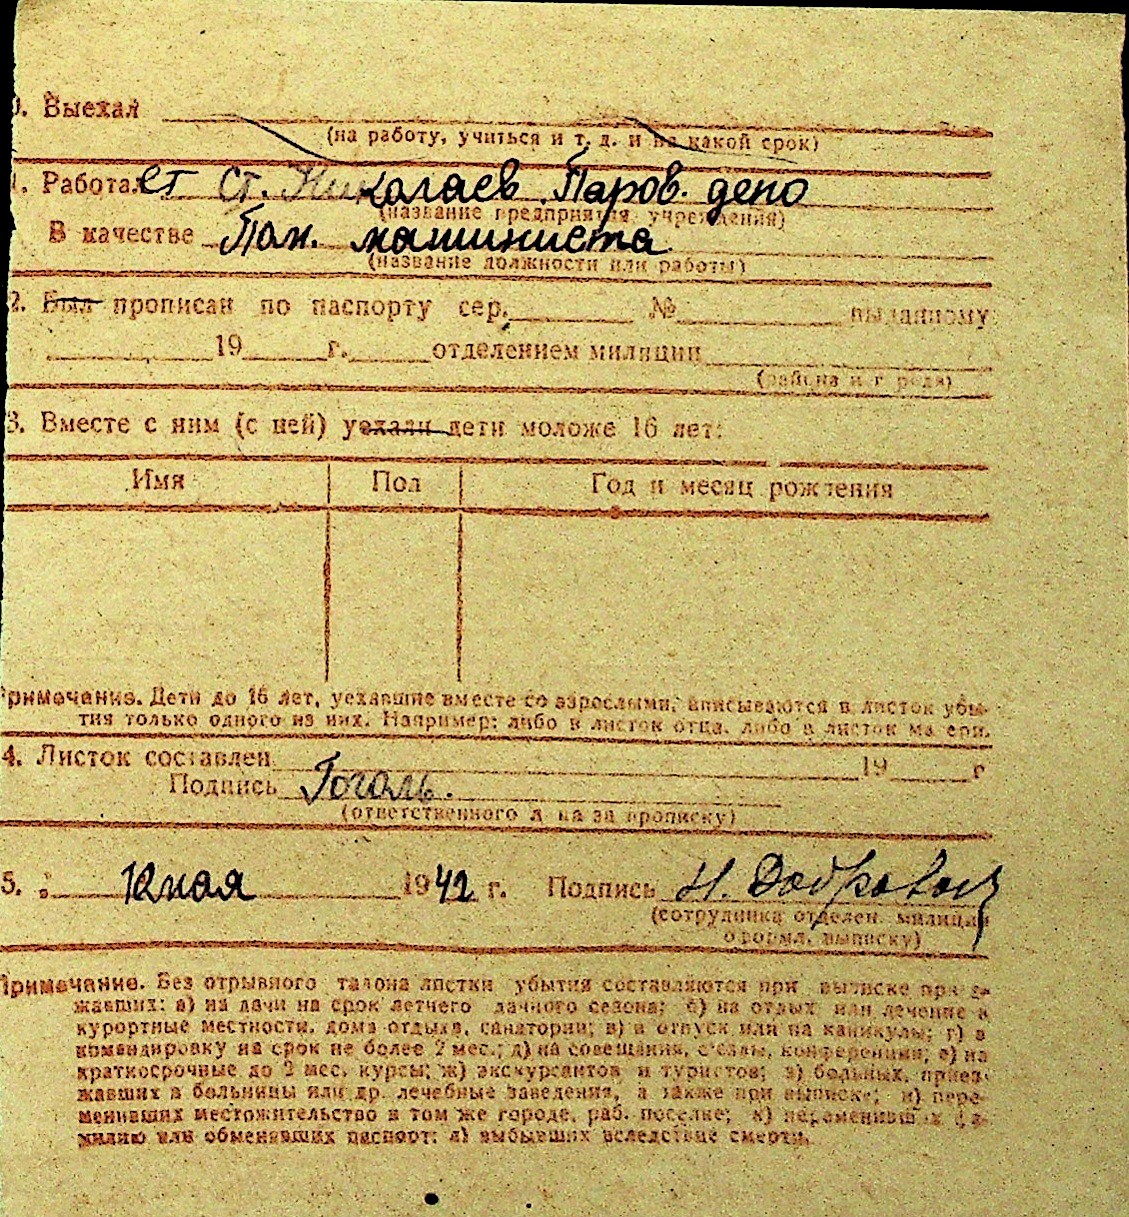 0. Выехал
(на работу, учиться и т. д. и на какой срок)
1. Работает ст. Николаев. Паров. депо
(название предприятия, учреждения)
В качестве Пом. машиниста
(название должности или работы)
2. Был прописан по паспорту сер. № выданному
19 г. отделением милиции
(района и города)
3. Вместе с ним (с ней) уехали дети моложе 16 лет:
Имя Пол Год и месяц рождения
Примечание. Дети до 16 лет, уехавшие вместе со взрослыми, вписываются в листок убы-
тия только одного из них. Например: либо в листок отца, либо в листок матери.
4. Листок составлен 19 г
Подпись Гоголь.
(ответственного л на за прописку)
5. мая 1942 г. Подпись Н.
(сотрудника отделен. милиции
оформл. выписку)
Примечание. Без отрывного талона листки убытия составляются при выписке приез-
жавших: а) на дачи на срок летнего дачного сезона; б) на отдых или лечение в
курортные местности, дома отдыха, санатории; в) в отпуск или на каникулы; г) в
командировку на срок не более 2 мес.; д) на совещания, съезды, конференции; е) на
краткосрочные до 2 мес. курсы; ж) экскурсантов и туристов; з) больных, приез-
жавших в больницы или др. лечебные заведения, а также при выписке; и) пере-
менивших местожительство в том же городе, раб. поселке; к) переменивших фа-
милию или обменявших паспорт; л) выбывших вследствие смерти.